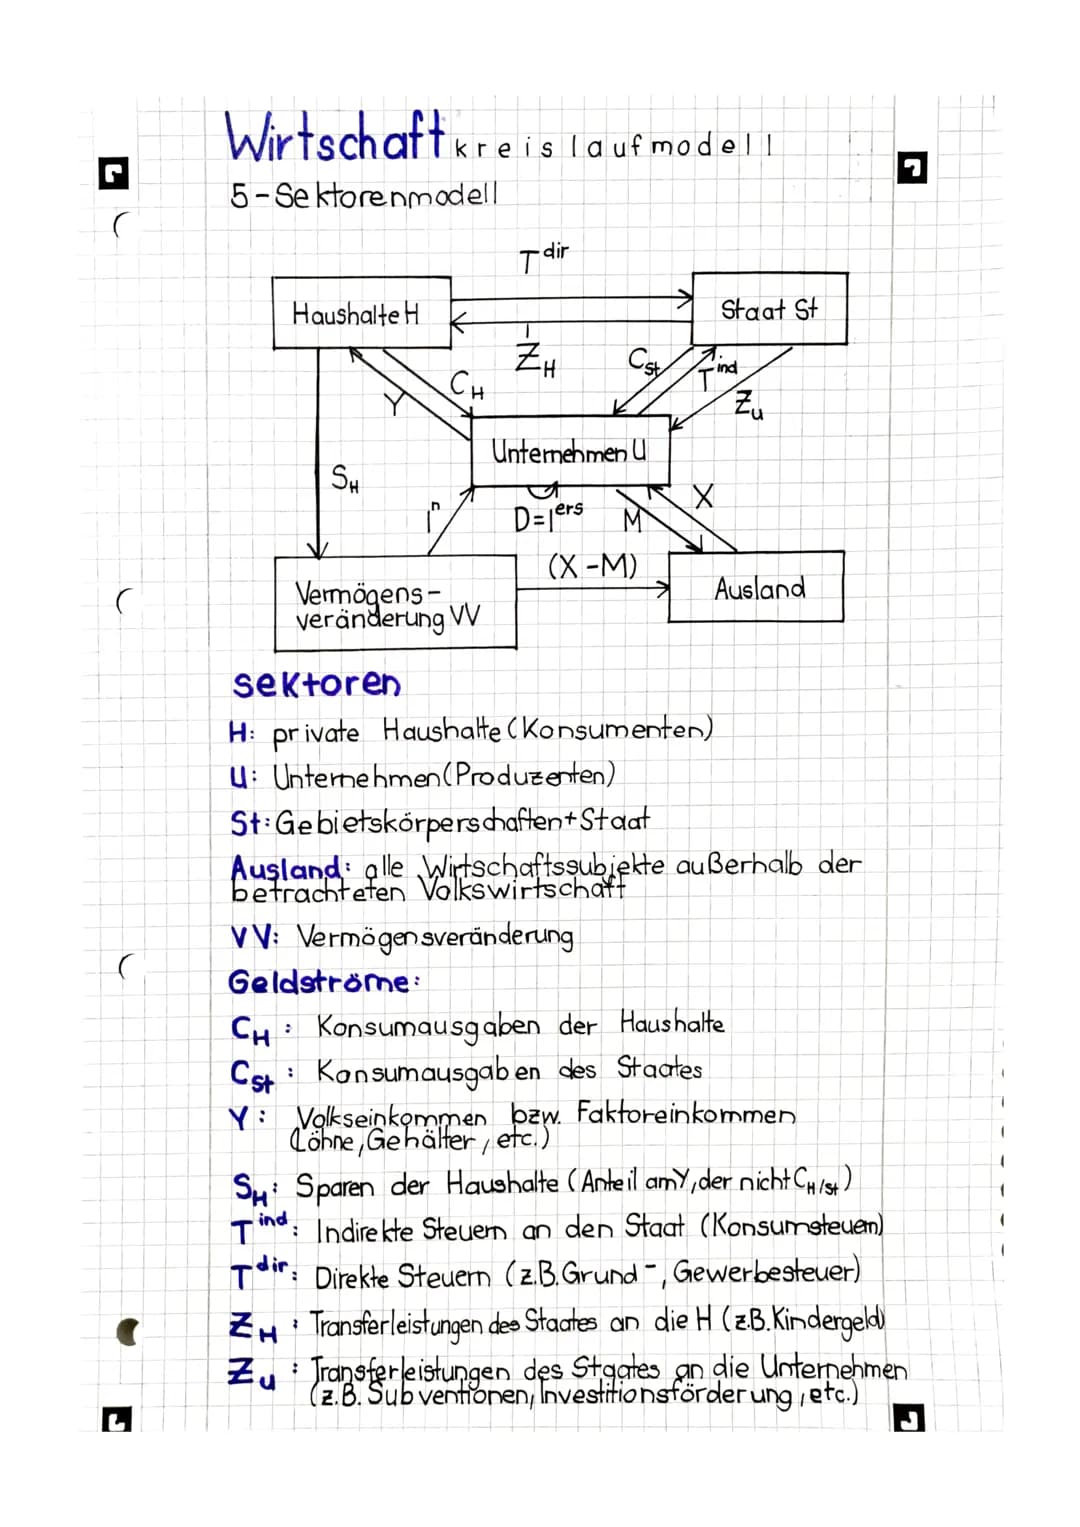 Wirtschaftkreislaufmodell
5-Sektorenmodell
T dir
Haushalte H
Staat St
Z_H
C_St
T ind
Z_u
C_H
Y
Unternehmen U
S_H
I^n
D=I^ers
M
X
(X-M)
Vermögens-
veränderung VV
Ausland
sektoren
H: private Haushalte (Konsumenten)
U: Unternehmen (Produzenten)
St: Gebietskörperschaften + Staat
Ausland: alle Wirtschaftssubjekte außerhalb der
betrachteten Volkswirtschaft
VV: Vermögensveränderung
Geldströme:
C_H: Konsumausgaben der Haushalte
C_St: Konsumausgaben des Staates
Y: Volkseinkommen bzw. Faktoreinkommen
(Löhne, Gehälter, etc.)
S_H: Sparen der Haushalte (Anteil am Y, der nicht C_H/St)
T ind: Indirekte Steuern an den Staat (Konsumsteuern)
T dir: Direkte Steuern (z.B. Grund-, Gewerbesteuer)
Z_H: Transferleistungen des Staates an die H (z.B. Kindergeld)
Z_u: Transferleistungen des Staates an die Unternehmen
(z.B. Subventionen, Investitionsförderung, etc.)